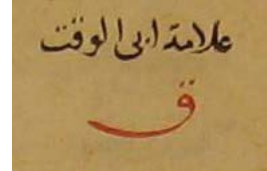 علامة ابى الوقت
ق